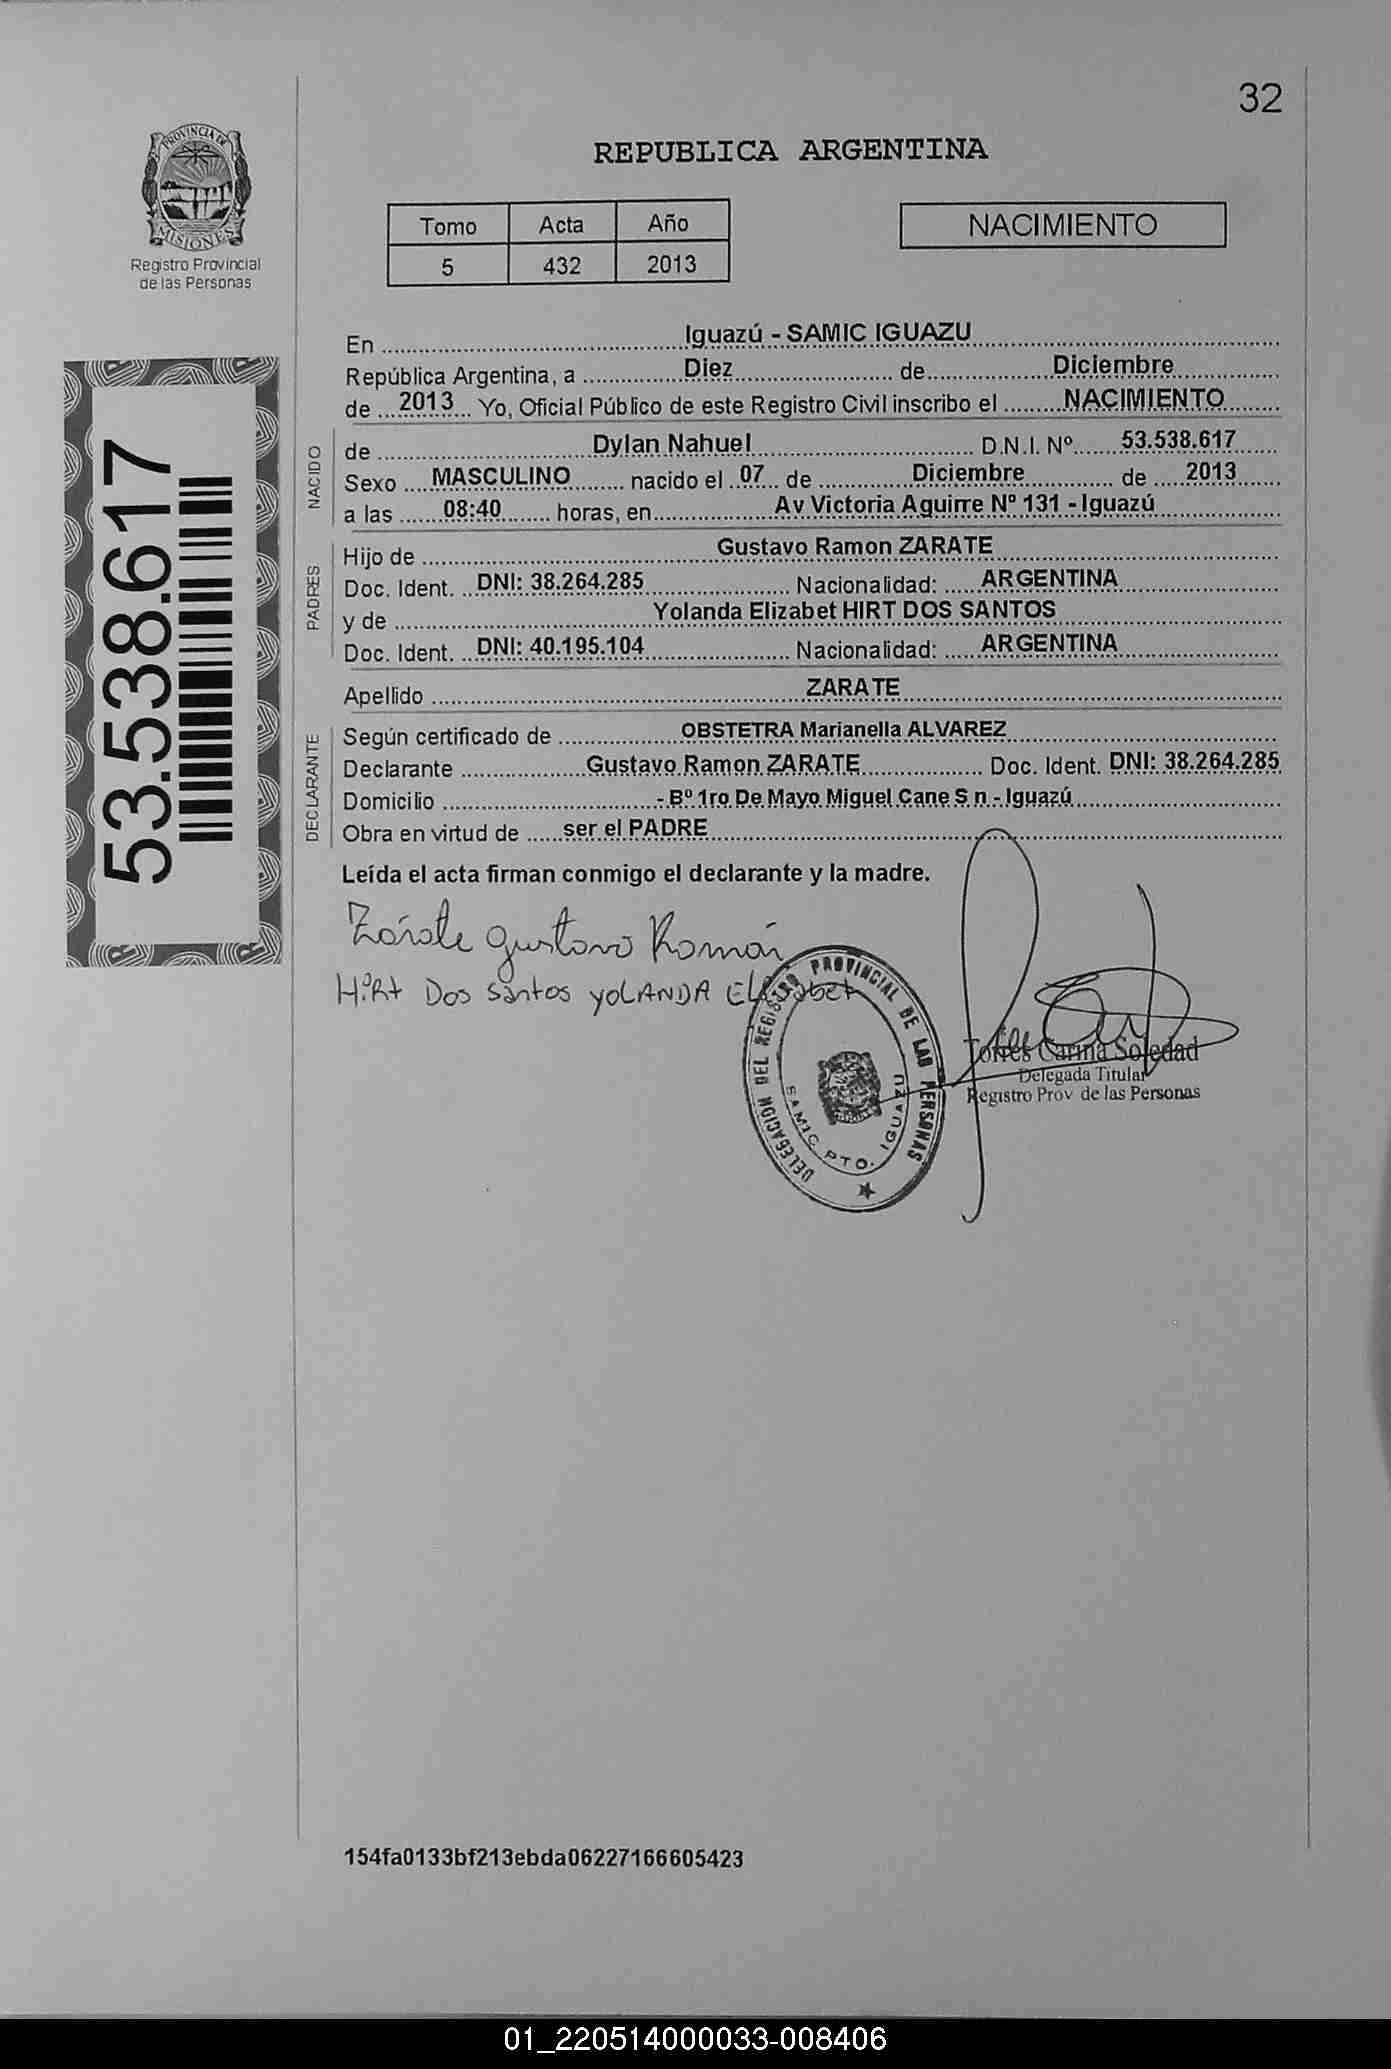 32
PROVINCIA DE
MISIONES
Registro Provincial
de las Personas
REPUBLICA ARGENTINA
Tomo Acta Año
5 432 2013
NACIMIENTO
53.538.617
En Iguazú - SAMIC IGUAZU
República Argentina, a Diez de Diciembre
de 2013 Yo, Oficial Público de este Registro Civil inscribo el NACIMIENTO
NACIDO
de Dylan Nahuel D.N.I. Nº 53.538.617
Sexo MASCULINO nacido el 07 de Diciembre de 2013
a las 08:40 horas, en Av Victoria Aguirre Nº 131 - Iguazú
PADRES
Hijo de Gustavo Ramon ZARATE
Doc. Ident. DNI: 38.264.285 Nacionalidad: ARGENTINA
y de Yolanda Elizabet HIRT DOS SANTOS
Doc. Ident. DNI: 40.195.104 Nacionalidad: ARGENTINA
Apellido ZARATE
DECLARANTE
Según certificado de OBSTETRA Marianella ALVAREZ
Declarante Gustavo Ramon ZARATE Doc. Ident. DNI: 38.264.285
Domicilio - Bº 1ro De Mayo Miguel Cane S n - Iguazú
Obra en virtud de ser el PADRE
Leída el acta firman conmigo el declarante y la madre.
Zárate Gustavo Ramón
HiRt Dos Santos YOLANDA Elizabet
DELEGACION DEL REGISTRO PROVINCIAL DE LAS PERSONAS
SAMIC PTO. IGUAZU
Torres Carina Soledad
Delegada Titular
Registro Prov de las Personas
154fa0133bf213ebda06227166605423
01_220514000033-008406